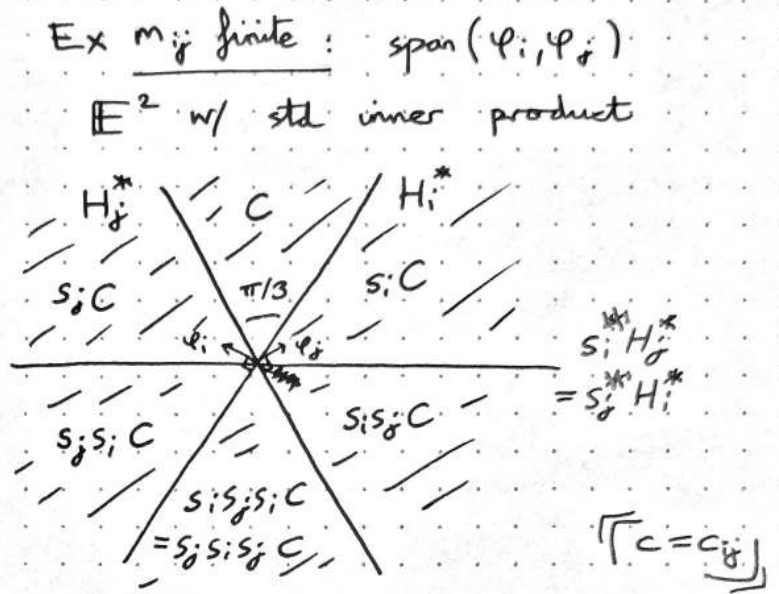 Ex m_ij finite : span(φ_i, φ_j)
𝔼² w/ std inner product
H_j* C H_i*
s_j C π/3 s_i C
φ_i φ_j
s_i H_j*
= s_j H_i*
s_j s_i C s_i s_j C
s_i s_j s_i C
= s_j s_i s_j C
C = C_ij